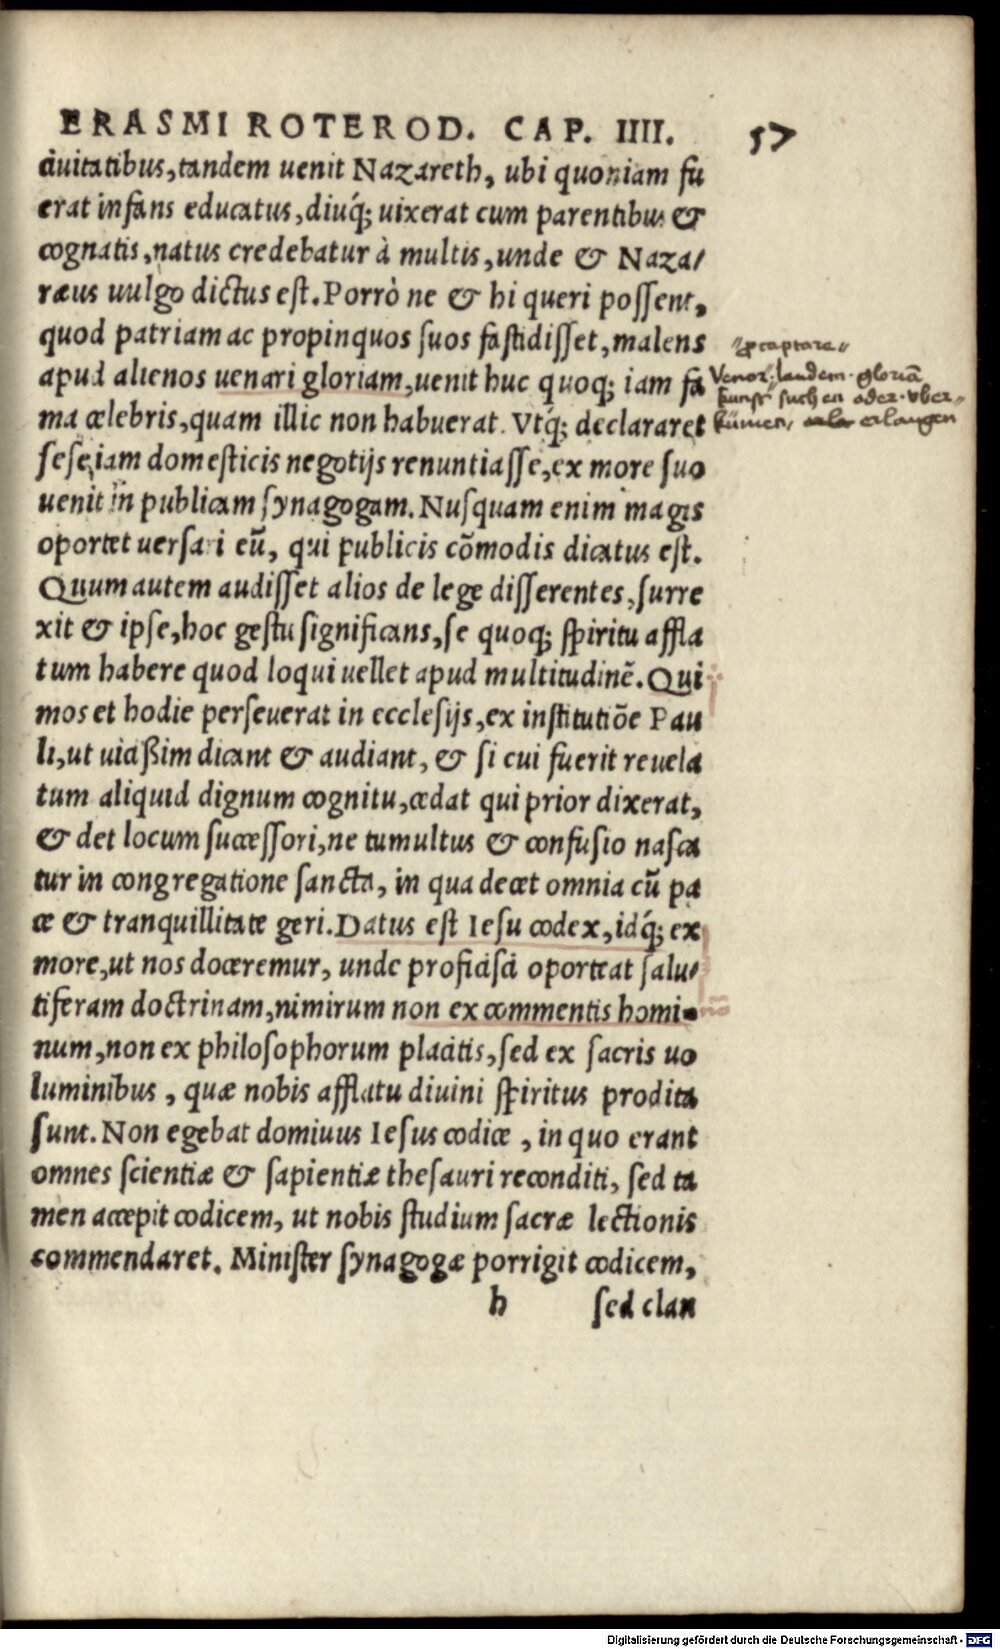 ERASMI ROTEROD. CAP. IIII.
57
ciuitatibus, tandem uenit Nazareth, ubi quoniam fu
erat infans educatus, diuq́; uixerat cum parentibus &
cognatis, natus credebatur à multis, unde & Naza/
ræus uulgo dictus est. Porrò ne & hi queri possent,
quod patriam ac propinquos suos fastidisset, malens
apud alienos uenari gloriam, uenit huc quoq; iam fa
ma celebris, quam illic non habuerat. Vtq́; declararet
sese iam domesticis negotijs renuntiasse, ex more suo
uenit in publicam synagogam. Nusquam enim magis
oportet uersari eũ, qui publicis cõmodis dicatus est.
Quum autem audisset alios de lege disserentes, surre
xit & ipse, hoc gestu significans, se quoq; spiritu affla
tum habere quod loqui uellet apud multitudinẽ. Qui
mos et hodie perseuerat in ecclesijs, ex institutiõe Pau
li, ut uicißim dicant & audiant, & si cui fuerit reuela
tum aliquid dignum cognitu, cedat qui prior dixerat,
& det locum successori, ne tumultus & confusio nasca
tur in congregatione sancta, in qua decet omnia cũ pa
ce & tranquillitate geri. Datus est Iesu codex, idq́; ex
more, ut nos doceremur, unde proficisci oporteat salu/
tiferam doctrinam, nimirum non ex commentis homi-
num, non ex philosophorum placitis, sed ex sacris uo
luminibus, quæ nobis afflatu diuini spiritus prodita
sunt. Non egebat domiuus Iesus codice, in quo erant
omnes scientiæ & sapientiæ thesauri reconditi, sed ta
men accepit codicem, ut nobis studium sacræ lectionis
commendaret. Minister synagogæ porrigit codicem,
h sed clau
captare
Venor, laudem. gloriã
kunst suchen oder. vber
kümen, erlangen
Digitalisierung gefördert durch die Deutsche Forschungsgemeinschaft - DFG